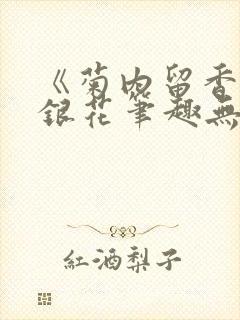 《菊内留香
銀花筆趣無
紅酒梨子